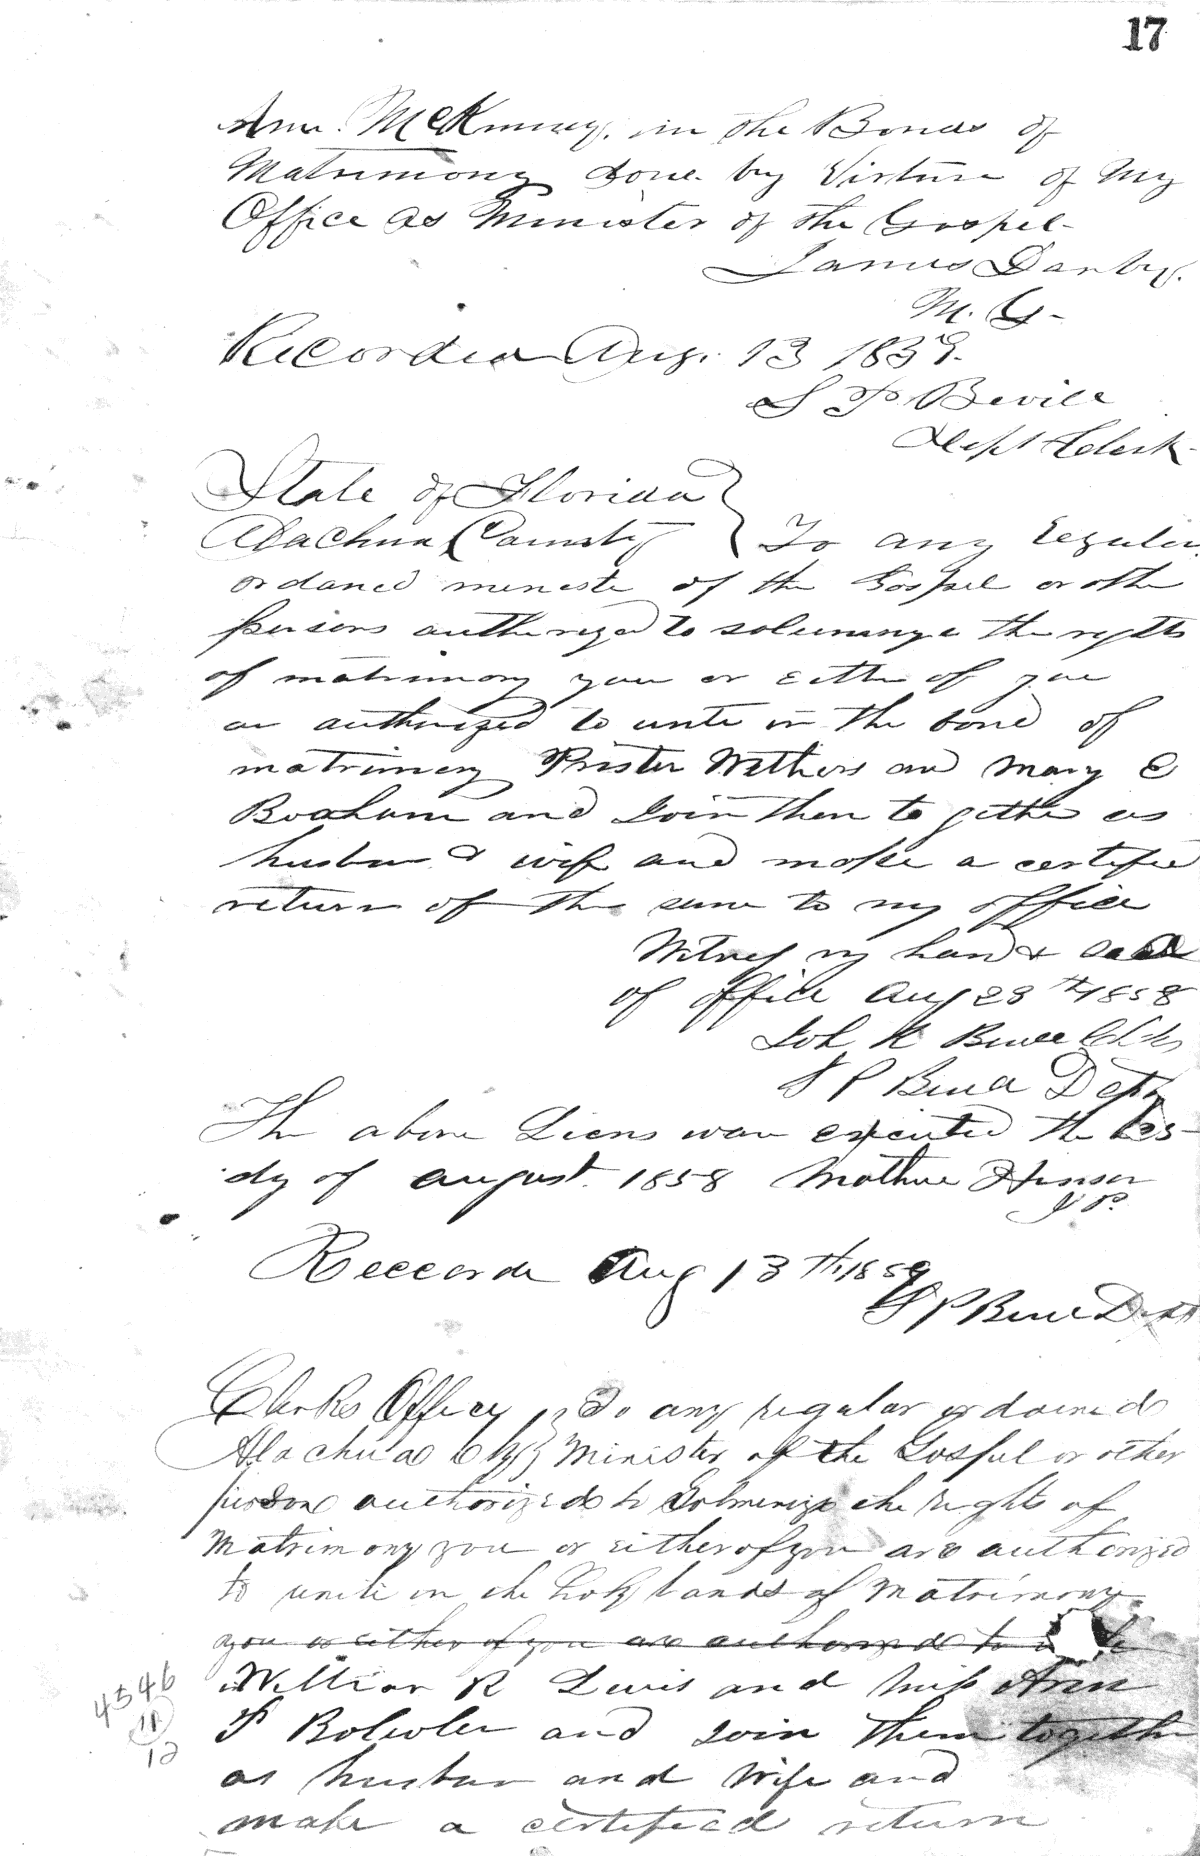 17
Ann. McKinney. in the Bonds of
Matrimony done by Virture of My
Office as Minister of the Gospel-
James Danby.
M. G-
Recorded Aug. 13 1859.
S P Bevill
Dept Clerk
State of Florida
Alachua County } To any regular
ordaned ministe of the Gospel or othe
persons autherized to solumnize the rights
of matrimony you or eithe of you
ar authorized to unite in the bond of
matrimony Prister Withers and Mary E
and Join them to gether as
husban & wife and make a certified
return of the same to my office
Witness my hand & seal
of office Aug 28th 1858
K Bevill Clk
S P Bevill Dept
The above Licens was executed the
dy of august. 1858
J P.
Reccorde Aug 13th 1859
S P Bevill Dept
Clerks Office } To any regular ordained
Alachua Cty } Minister of the Gosful or other
persone authorized to Solmenize the rights of
Matrimony you or either of you are authorized
to unite in the holy bands of Matrimony
you or either of you are authorized to
William R Lewis and Miss Ann
P and Join them together
as husban and Wife and
make a certified return
4546
11
12